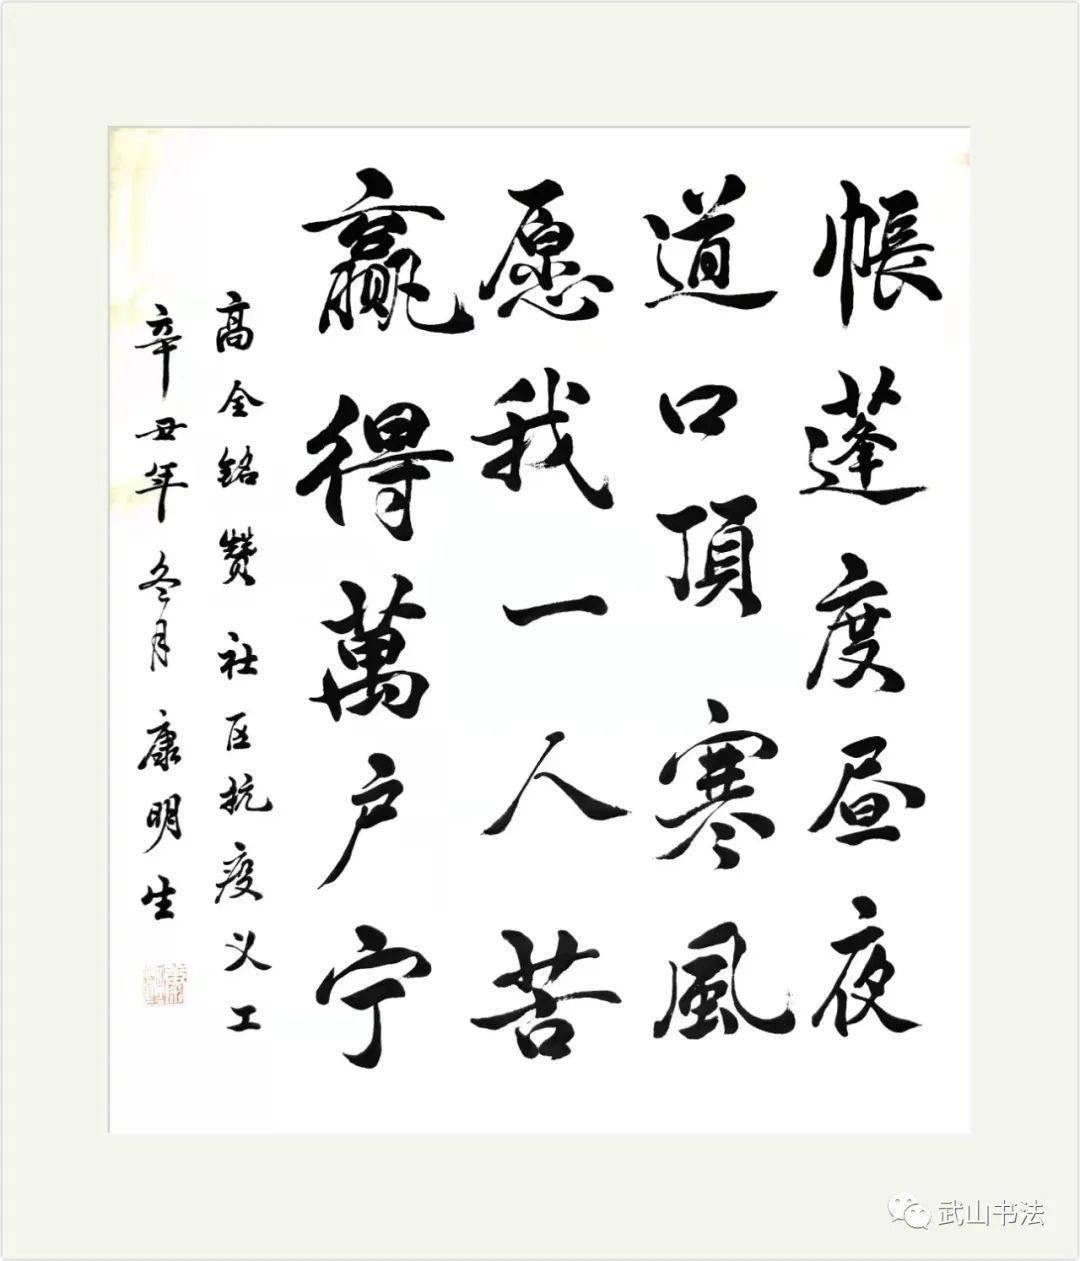 帳蓬度昼夜
道口頂寒風
愿我一人苦
赢得萬户宁
高全銘贊社区抗疫义工
辛丑年冬月康明生
武山书法